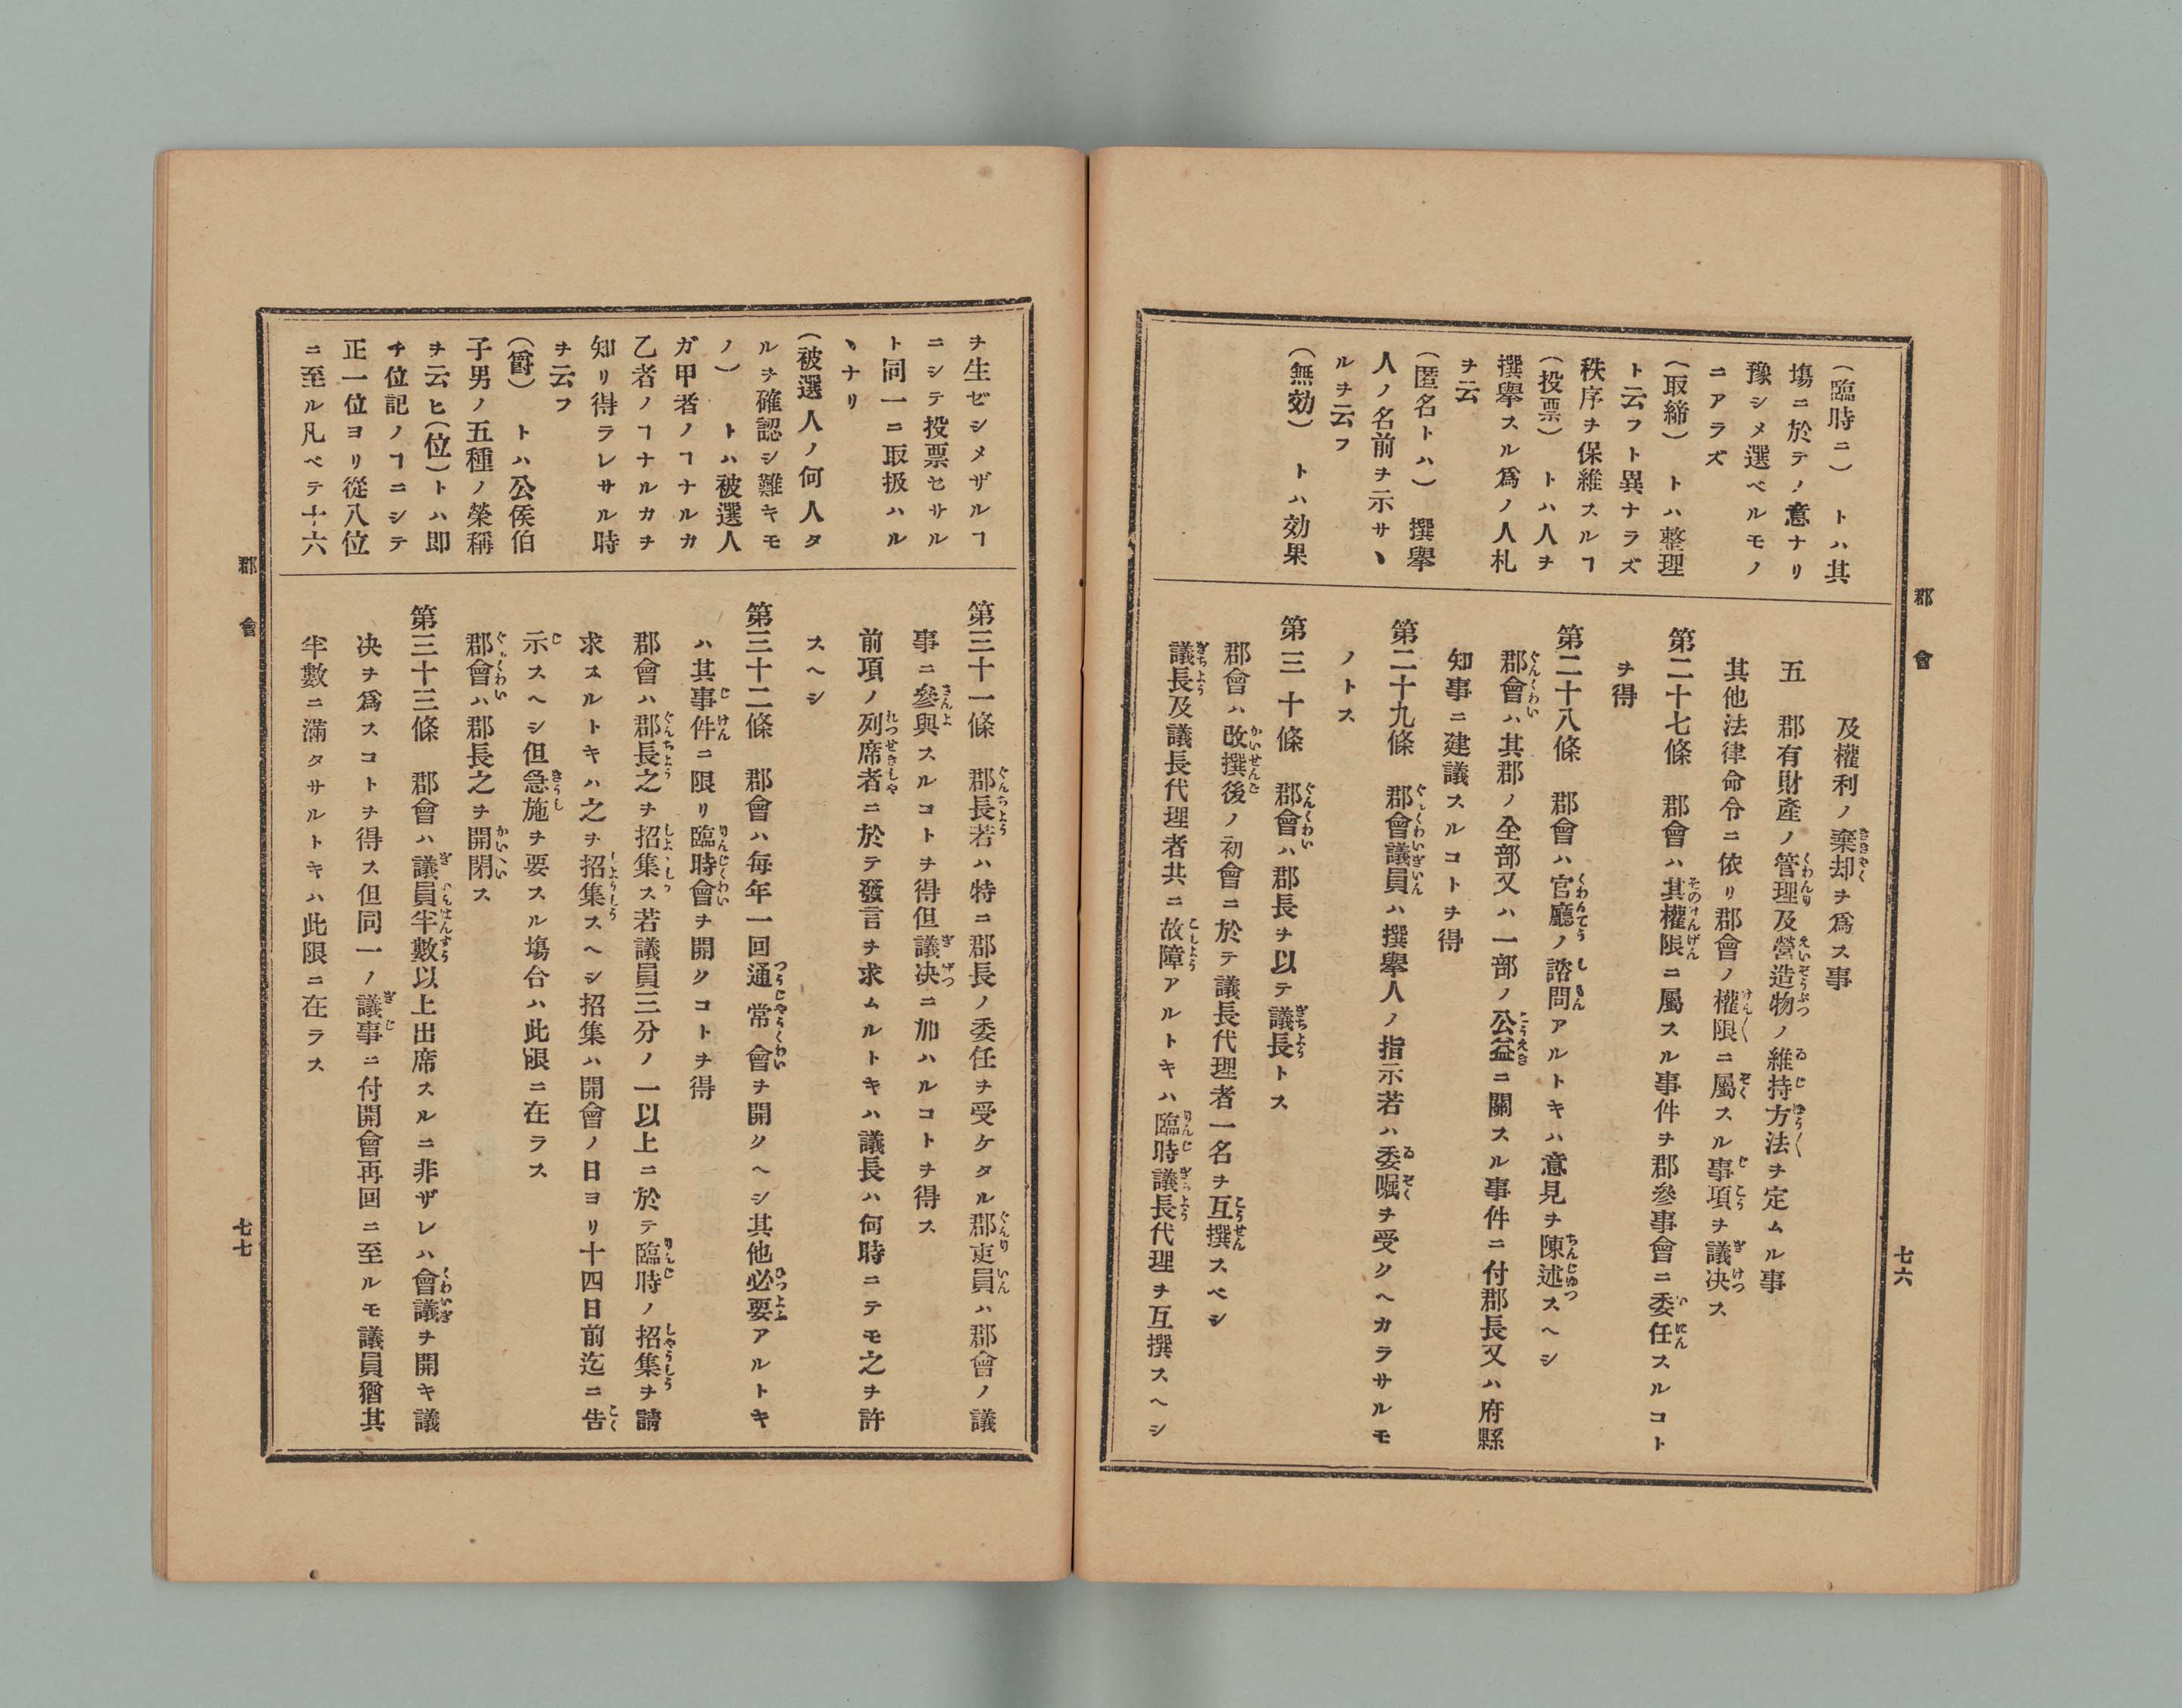 郡會
七六
(臨時ニ)トハ其
塲ニ於テノ意ナリ
豫シメ選ベルモノ
ニアラズ
(取締)トハ整理
ト云フト異ナラズ
秩序ヲ保維スルヿ
(投票)トハ人ヲ
撰擧スル爲ノ人札
ヲ云
(匿名トハ)撰擧
人ノ名前ヲ示サヽ
ルヲ云フ
(無効)トハ効果
及權利ノ棄却ヲ爲ス事
五 郡有財產ノ管理及營造物ノ維持方法ヲ定ムル事
其他法律命令ニ依リ郡會ノ權限ニ屬スル事項ヲ議决ス
第二十七條 郡會ハ其權限ニ屬スル事件ヲ郡參事會ニ委任スルコト
ヲ得
第二十八條 郡會ハ官廳ノ諮問アルトキハ意見ヲ陳述スヘシ
郡會ハ其郡ノ全部又ハ一部ノ公益ニ關スル事件ニ付郡長又ハ府縣
知事ニ建議スルコトヲ得
第二十九條 郡會議員ハ撰擧人ノ指示若ハ委囑ヲ受クヘカラサルモ
ノトス
第三十條 郡會ハ郡長ヲ以テ議長トス
郡會ハ改撰後ノ初會ニ於テ議長代理者一名ヲ互撰スベシ
議長及議長代理者共ニ故障アルトキハ臨時議長代理ヲ互撰スヘシ
ヲ生ゼシメザルヿ
ニシテ投票セサル
ト同一ニ取扱ハル
ヽナリ
(被選人ノ何人タ
ルヲ確認シ難キモ
ノ)トハ被選人
ガ甲者ノヿナルカ
乙者ノヿナルカヲ
知リ得ラレサル時
ヲ云フ
(爵)トハ公侯伯
子男ノ五種ノ榮稱
ヲ云ヒ(位)トハ即
チ位記ノヿニシテ
正一位ヨリ從八位
ニ至ル凡ベテ十六
第三十一條 郡長若ハ特ニ郡長ノ委任ヲ受ケタル郡吏員ハ郡會ノ議
事ニ參與スルコトヲ得但議决ニ加ハルコトヲ得ス
前項ノ列席者ニ於テ發言ヲ求ムルトキハ議長ハ何時ニテモ之ヲ許
スヘシ
第三十二條 郡會ハ每年一回通常會ヲ開クヘシ其他必要アルトキ
ハ其事件ニ限リ臨時會ヲ開クコトヲ得
郡會ハ郡長之ヲ招集ス若議員三分ノ一以上ニ於テ臨時ノ招集ヲ請
求スルトキハ之ヲ招集スヘシ招集ハ開會ノ日ヨリ十四日前迄ニ告
示スヘシ但急施ヲ要スル塲合ハ此限ニ在ラス
郡會ハ郡長之ヲ開閉ス
第三十三條 郡會ハ議員半數以上出席スルニ非ザレハ會議ヲ開キ議
决ヲ爲スコトヲ得ス但同一ノ議事ニ付開會再回ニ至ルモ議員猶其
半數ニ滿タサルトキハ此限ニ在ラス
郡會
七七